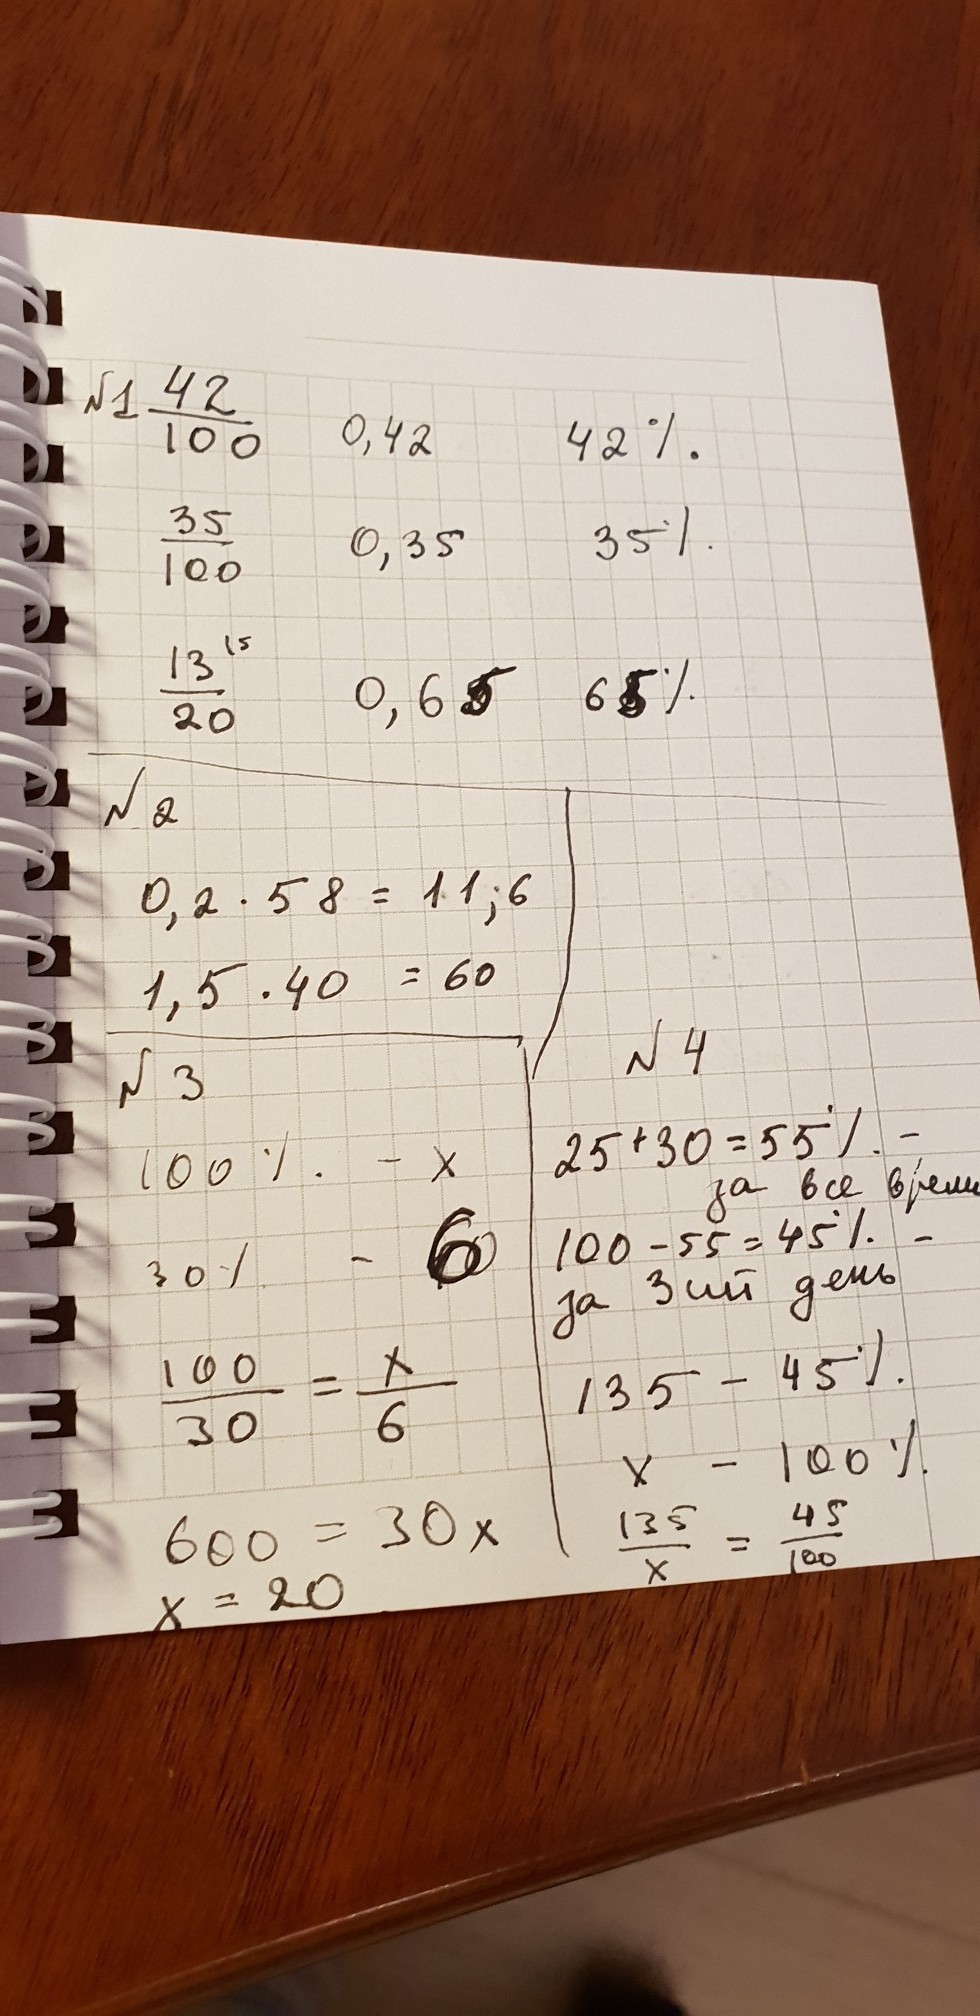 №1 42/100 0,42 42%.
35/100 0,35 35%.
13/20 15 0,65 65%
№2
0,2 · 58 = 11,6
1,5 · 40 = 60
№3
100%. - x
30% - 60
100/30 = x/6
600 = 30x
x = 20
№4
25+30=55%. -
за все время
100-55=45%. -
за 3ий день
135 - 45%.
x - 100%.
135/x = 45/100